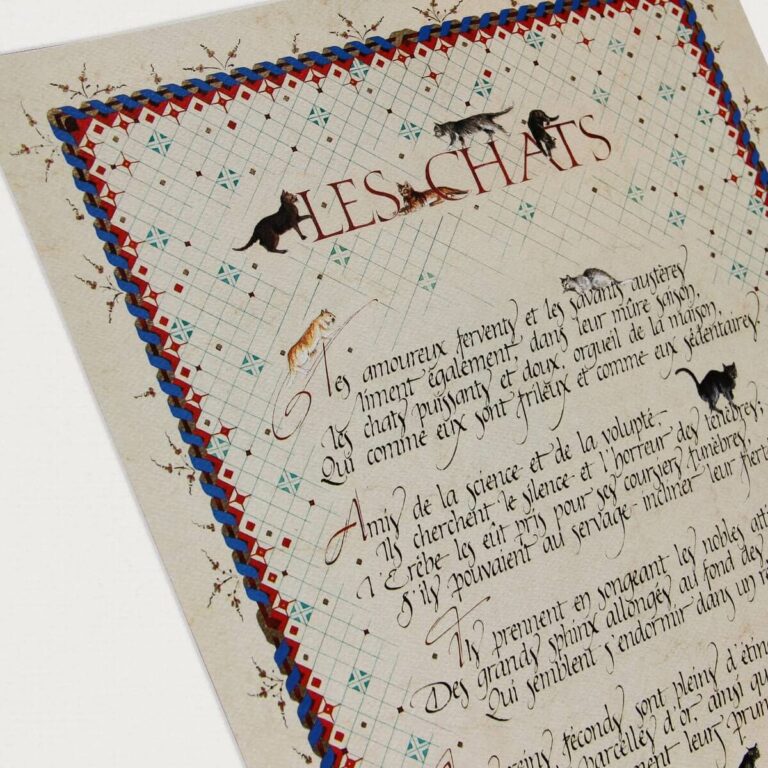 LES CHATS
Les amoureux fervents et les savants austères
liment également, dans leur mûre saison,
les chats puissants et doux, orgueil de la maison,
Qui comme eux sont frileux et comme eux sédentaires.
Amis de la science et de la volupté
Ils cherchent le silence et l'horreur des ténèbres;
l'Erèbe les eût pris pour ses coursiers funèbres,
s'ils pouvaient au servage incliner leur fierté
Ils prennent en songeant les nobles atti
Des grands sphinx allongés au fond des
Qui semblent s'endormir dans un rê
reins féconds sont pleins d'étin
parcelles d'or, ainsi qu
ment leurs prun